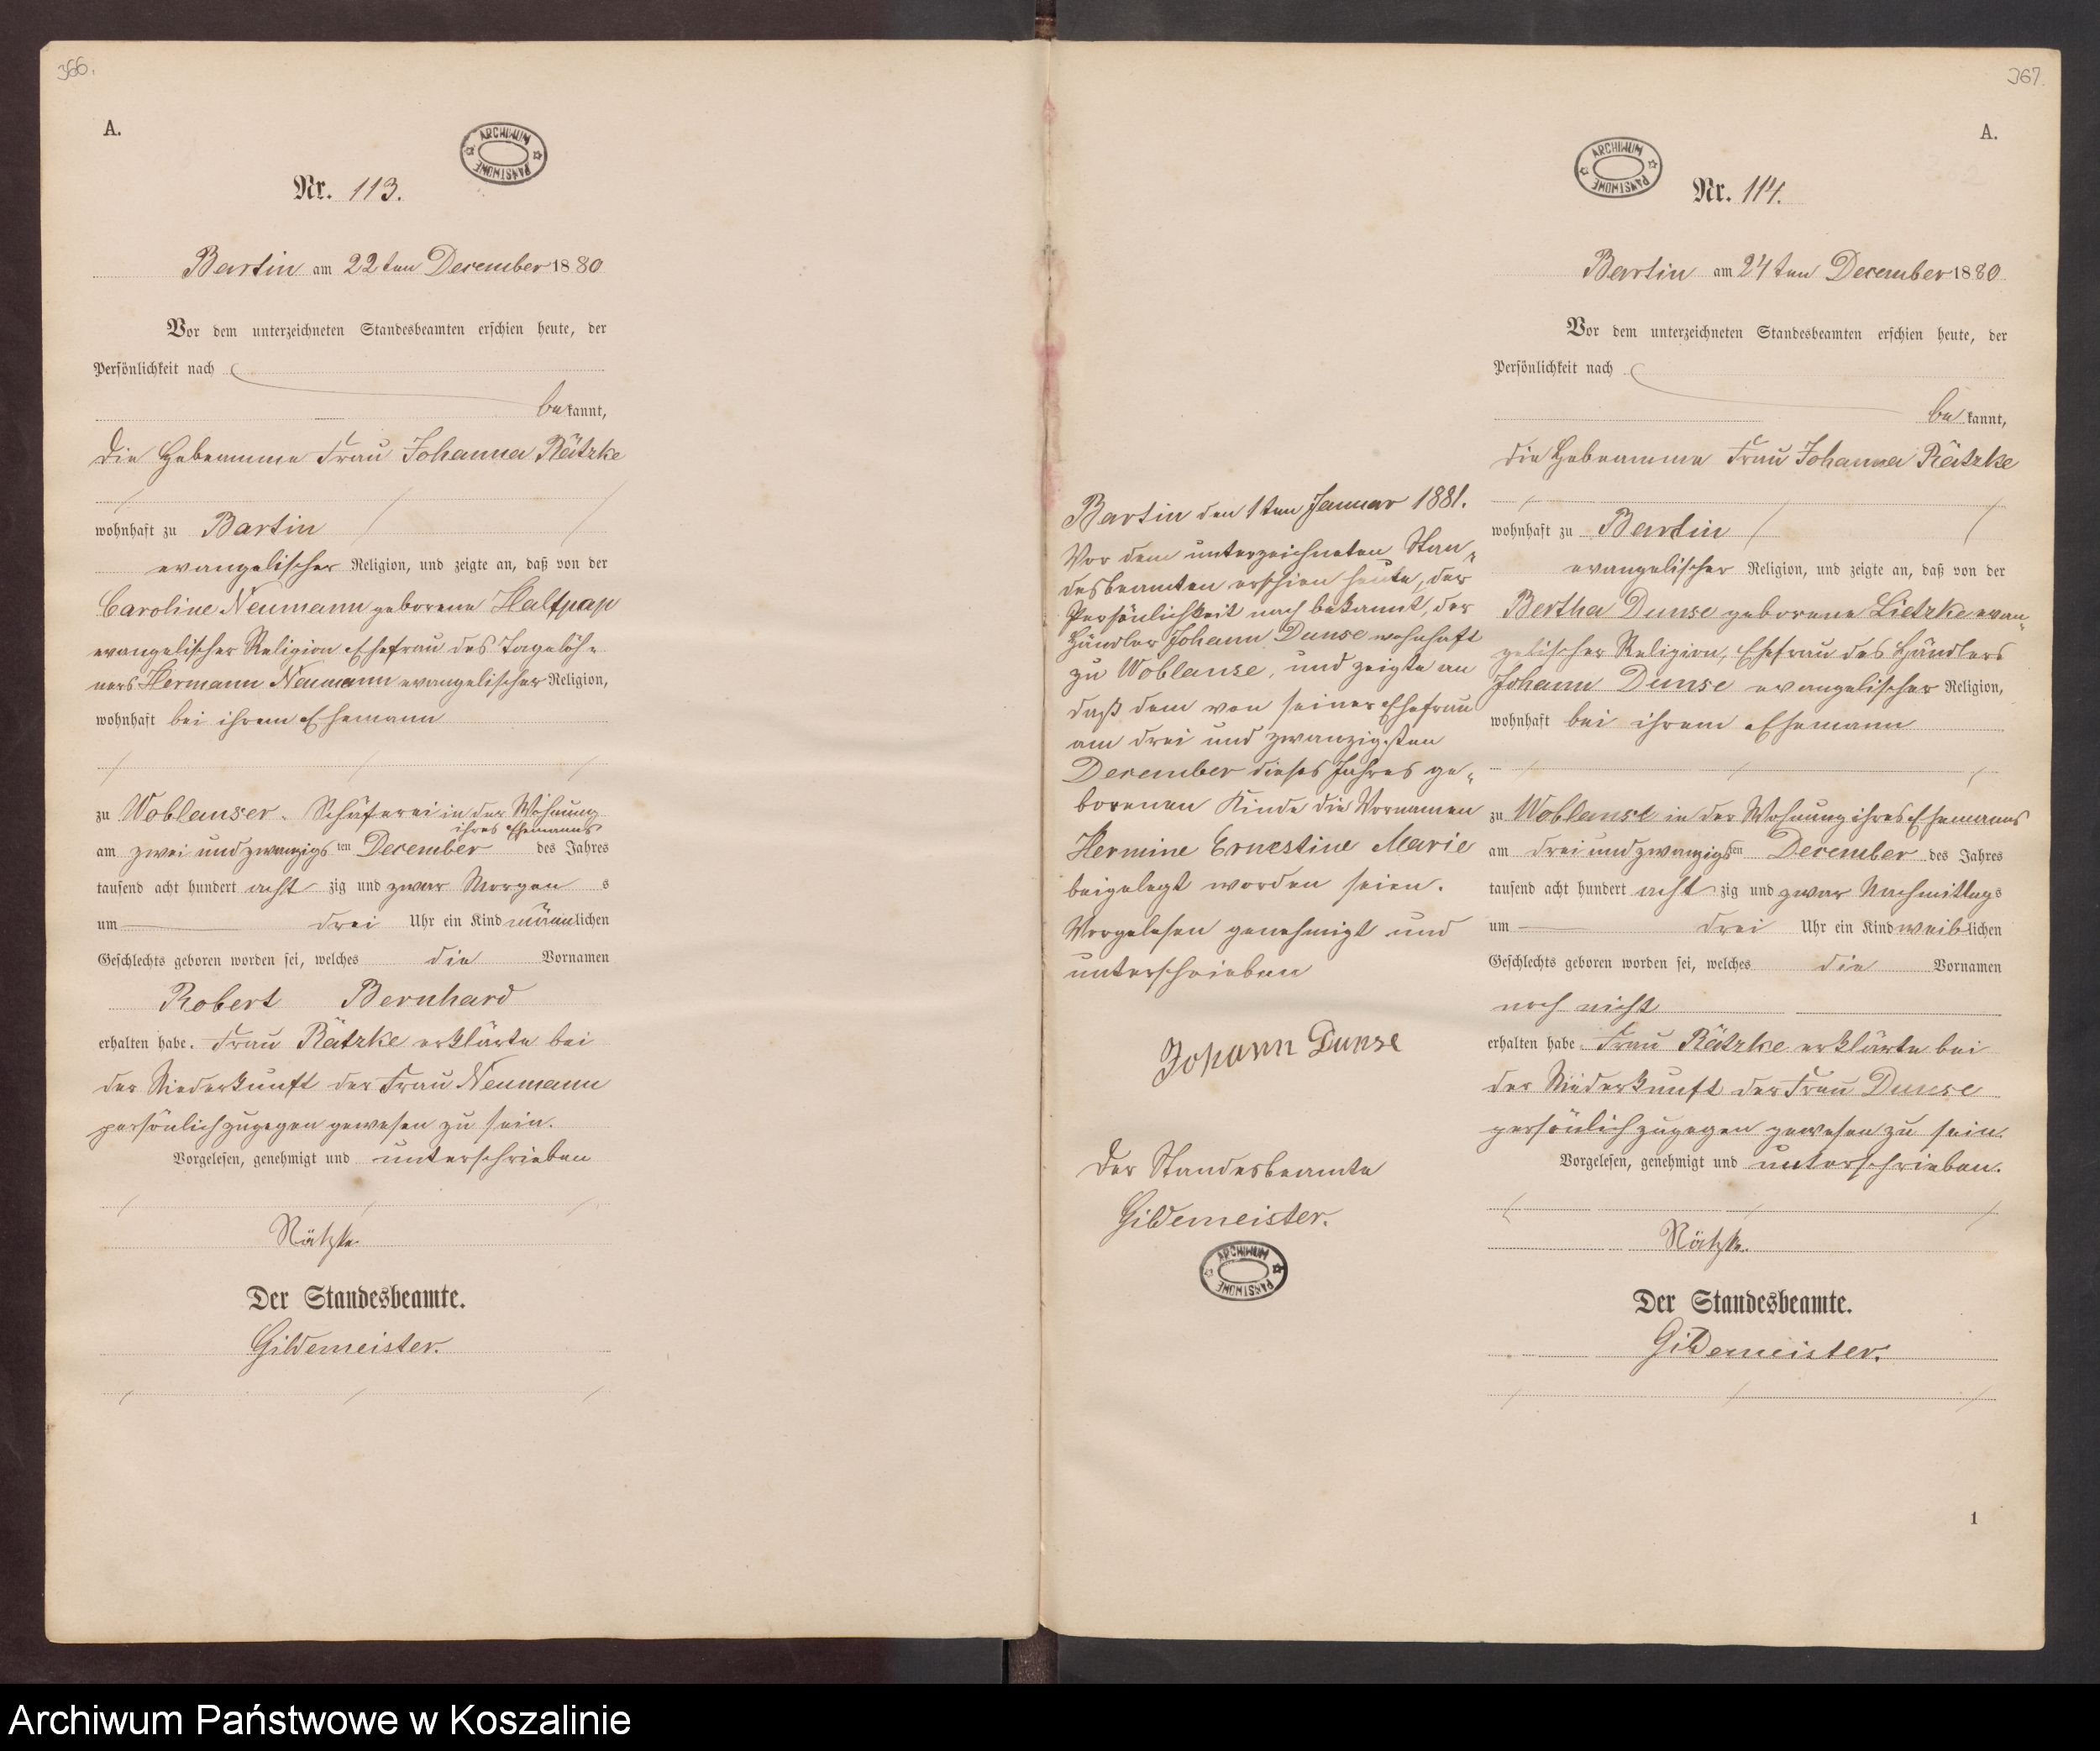 366.
A.
ARCHIWUM PAŃSTWOWE
Nr. 113.
Bartin am 22ten December 1880
Vor dem unterzeichneten Standesbeamten erschien heute, der
Persönlichkeit nach
bekannt,
die Hebeamme Frau Johanna Rätzke
wohnhaft zu Bartin
evangelischer Religion, und zeigte an, daß von der
Caroline Neumann geborene Halfpap
evangelischer Religion Ehefrau des Tagelöh-
ners Hermann Neumann evangelischer Religion,
wohnhaft bei ihrem Ehemann
zu Woblanser-Schäferei in der Wohnung
ihres Ehemanns
am zwei und zwanzigsten December des Jahres
tausend acht hundert achtzig und zwar Morgens
um drei Uhr ein Kind männlichen
Geschlechts geboren worden sei, welches die Vornamen
Robert Bernhard
erhalten habe. Frau Rätzke erklärte bei
der Niederkunft der Frau Neumann
persönlich zugegen gewesen zu sein.
Vorgelesen, genehmigt und unterschrieben
Rätzke.
Der Standesbeamte.
Gildemeister.
367.
A.
ARCHIWUM PAŃSTWOWE
Nr. 114.
Bartin am 24ten December 1880
Vor dem unterzeichneten Standesbeamten erschien heute, der
Persönlichkeit nach
bekannt,
die Hebeamme Frau Johanna Rätzke
wohnhaft zu Bartin
evangelischer Religion, und zeigte an, daß von der
Bertha Dunse geborene Lietzke evan-
gelischer Religion, Ehefrau des Händlers
Johann Dunse evangelischer Religion,
wohnhaft bei ihrem Ehemann
zu Woblanse in der Wohnung ihres Ehemanns
am drei und zwanzigsten December des Jahres
tausend acht hundert achtzig und zwar Nachmittags
um drei Uhr ein Kind weiblichen
Geschlechts geboren worden sei, welches die Vornamen
noch nicht
erhalten habe. Frau Rätzke erklärte bei
der Niederkunft der Frau Dunse
persönlich zugegen gewesen zu sein.
Vorgelesen, genehmigt und unterschrieben.
Rätzke.
Der Standesbeamte.
Gildemeister.
1
Bartin den 1ten Januar 1881.
Vor dem unterzeichneten Stan-
desbeamten erschien heute, der
Persönlichkeit nach bekannt, der
Händler Johann Dunse wohnhaft
zu Woblanse, und zeigte an
daß dem von seiner Ehefrau
am drei und zwanzigsten
December dieses Jahres ge-
borenen Kinde die Vornamen
Hermine Ernestine Marie
beigelegt worden seien.
Vorgelesen genehmigt und
unterschrieben
Johann Dunse
Der Standesbeamte
Gildemeister.
ARCHIWUM PAŃSTWOWE
Archiwum Państwowe w Koszalinie